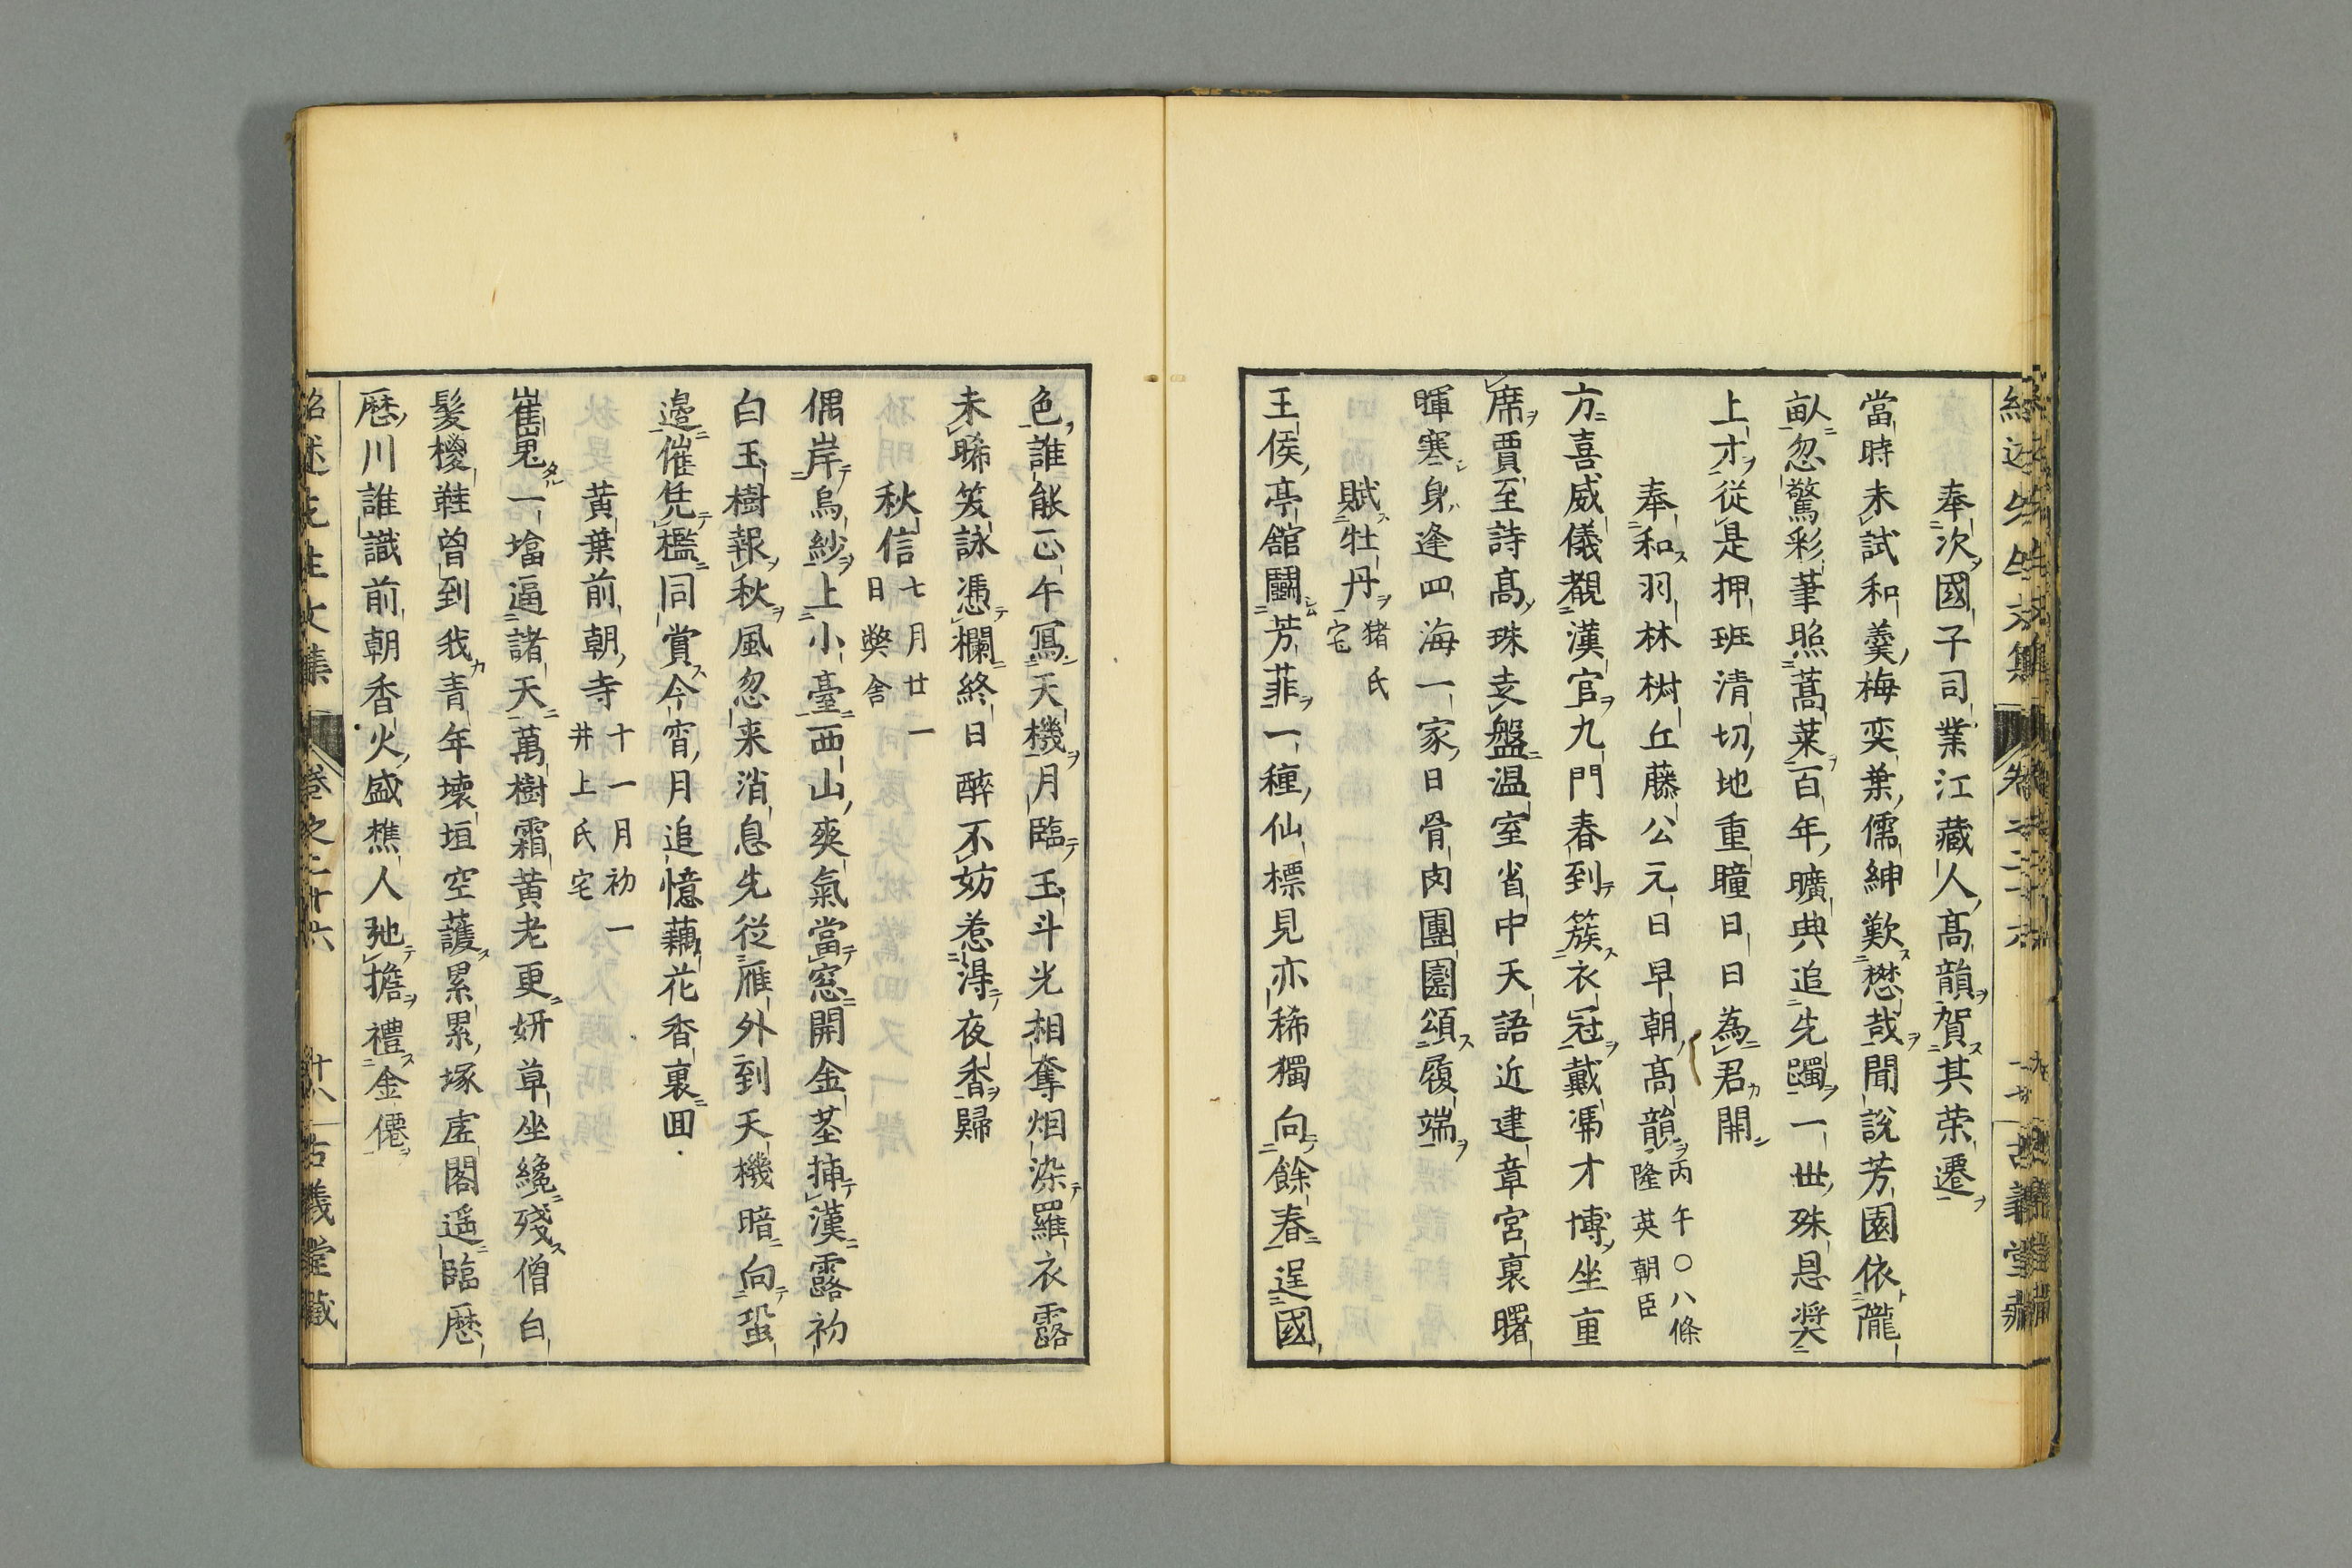 奉次國子司業江藏人高韻賀其荣遷
當時未試和羹梅奕葉儒紳歎懋哉聞說芳園依隴
畝忽驚彩筆照蒿萊百年曠典追先躅一世殊恩奨
上才從是押班清切地重瞳日日為君開
奉和羽林樹丘藤公元日早朝高韻
丙午〇八條
隆英朝臣
方喜威儀覩漢官九門春到簇衣冠戴馮才博坐重
席賈至詩高珠走盤温室省中天語近建章宮裏曙
暉寒身逢四海一家日骨肉團圝頌履端
賦牡丹
猪氏
宅
王侯亭舘鬪芳菲一種仙標見亦稀獨向餘春逞國
色誰能正午寫天機月臨玉斗光相奪烟染羅衣露
未晞笑詠憑欄終日醉不妨惹得夜香歸
秋信
七月廿一
日獘舍
偶岸烏紗上小臺西山爽氣當窓開金莖捕漢露初
白玉樹報秋風忽来消息先從雁外到天機暗向蛩
邉催凭檻同賞今宵月追憶藕花香裏囬
黄葉前朝寺
十一月初一
井上氏宅
崔嵬一墖逼諸天萬樹霜黄老更妍草坐纔殘僧白
髪椶鞋曾到我青年壊垣空護累累塚虚閣遥臨歴
歴川誰識前朝香火盛樵人弛擔禮金僊
紹述先生文集 卷之二十六 十八 古義堂藏